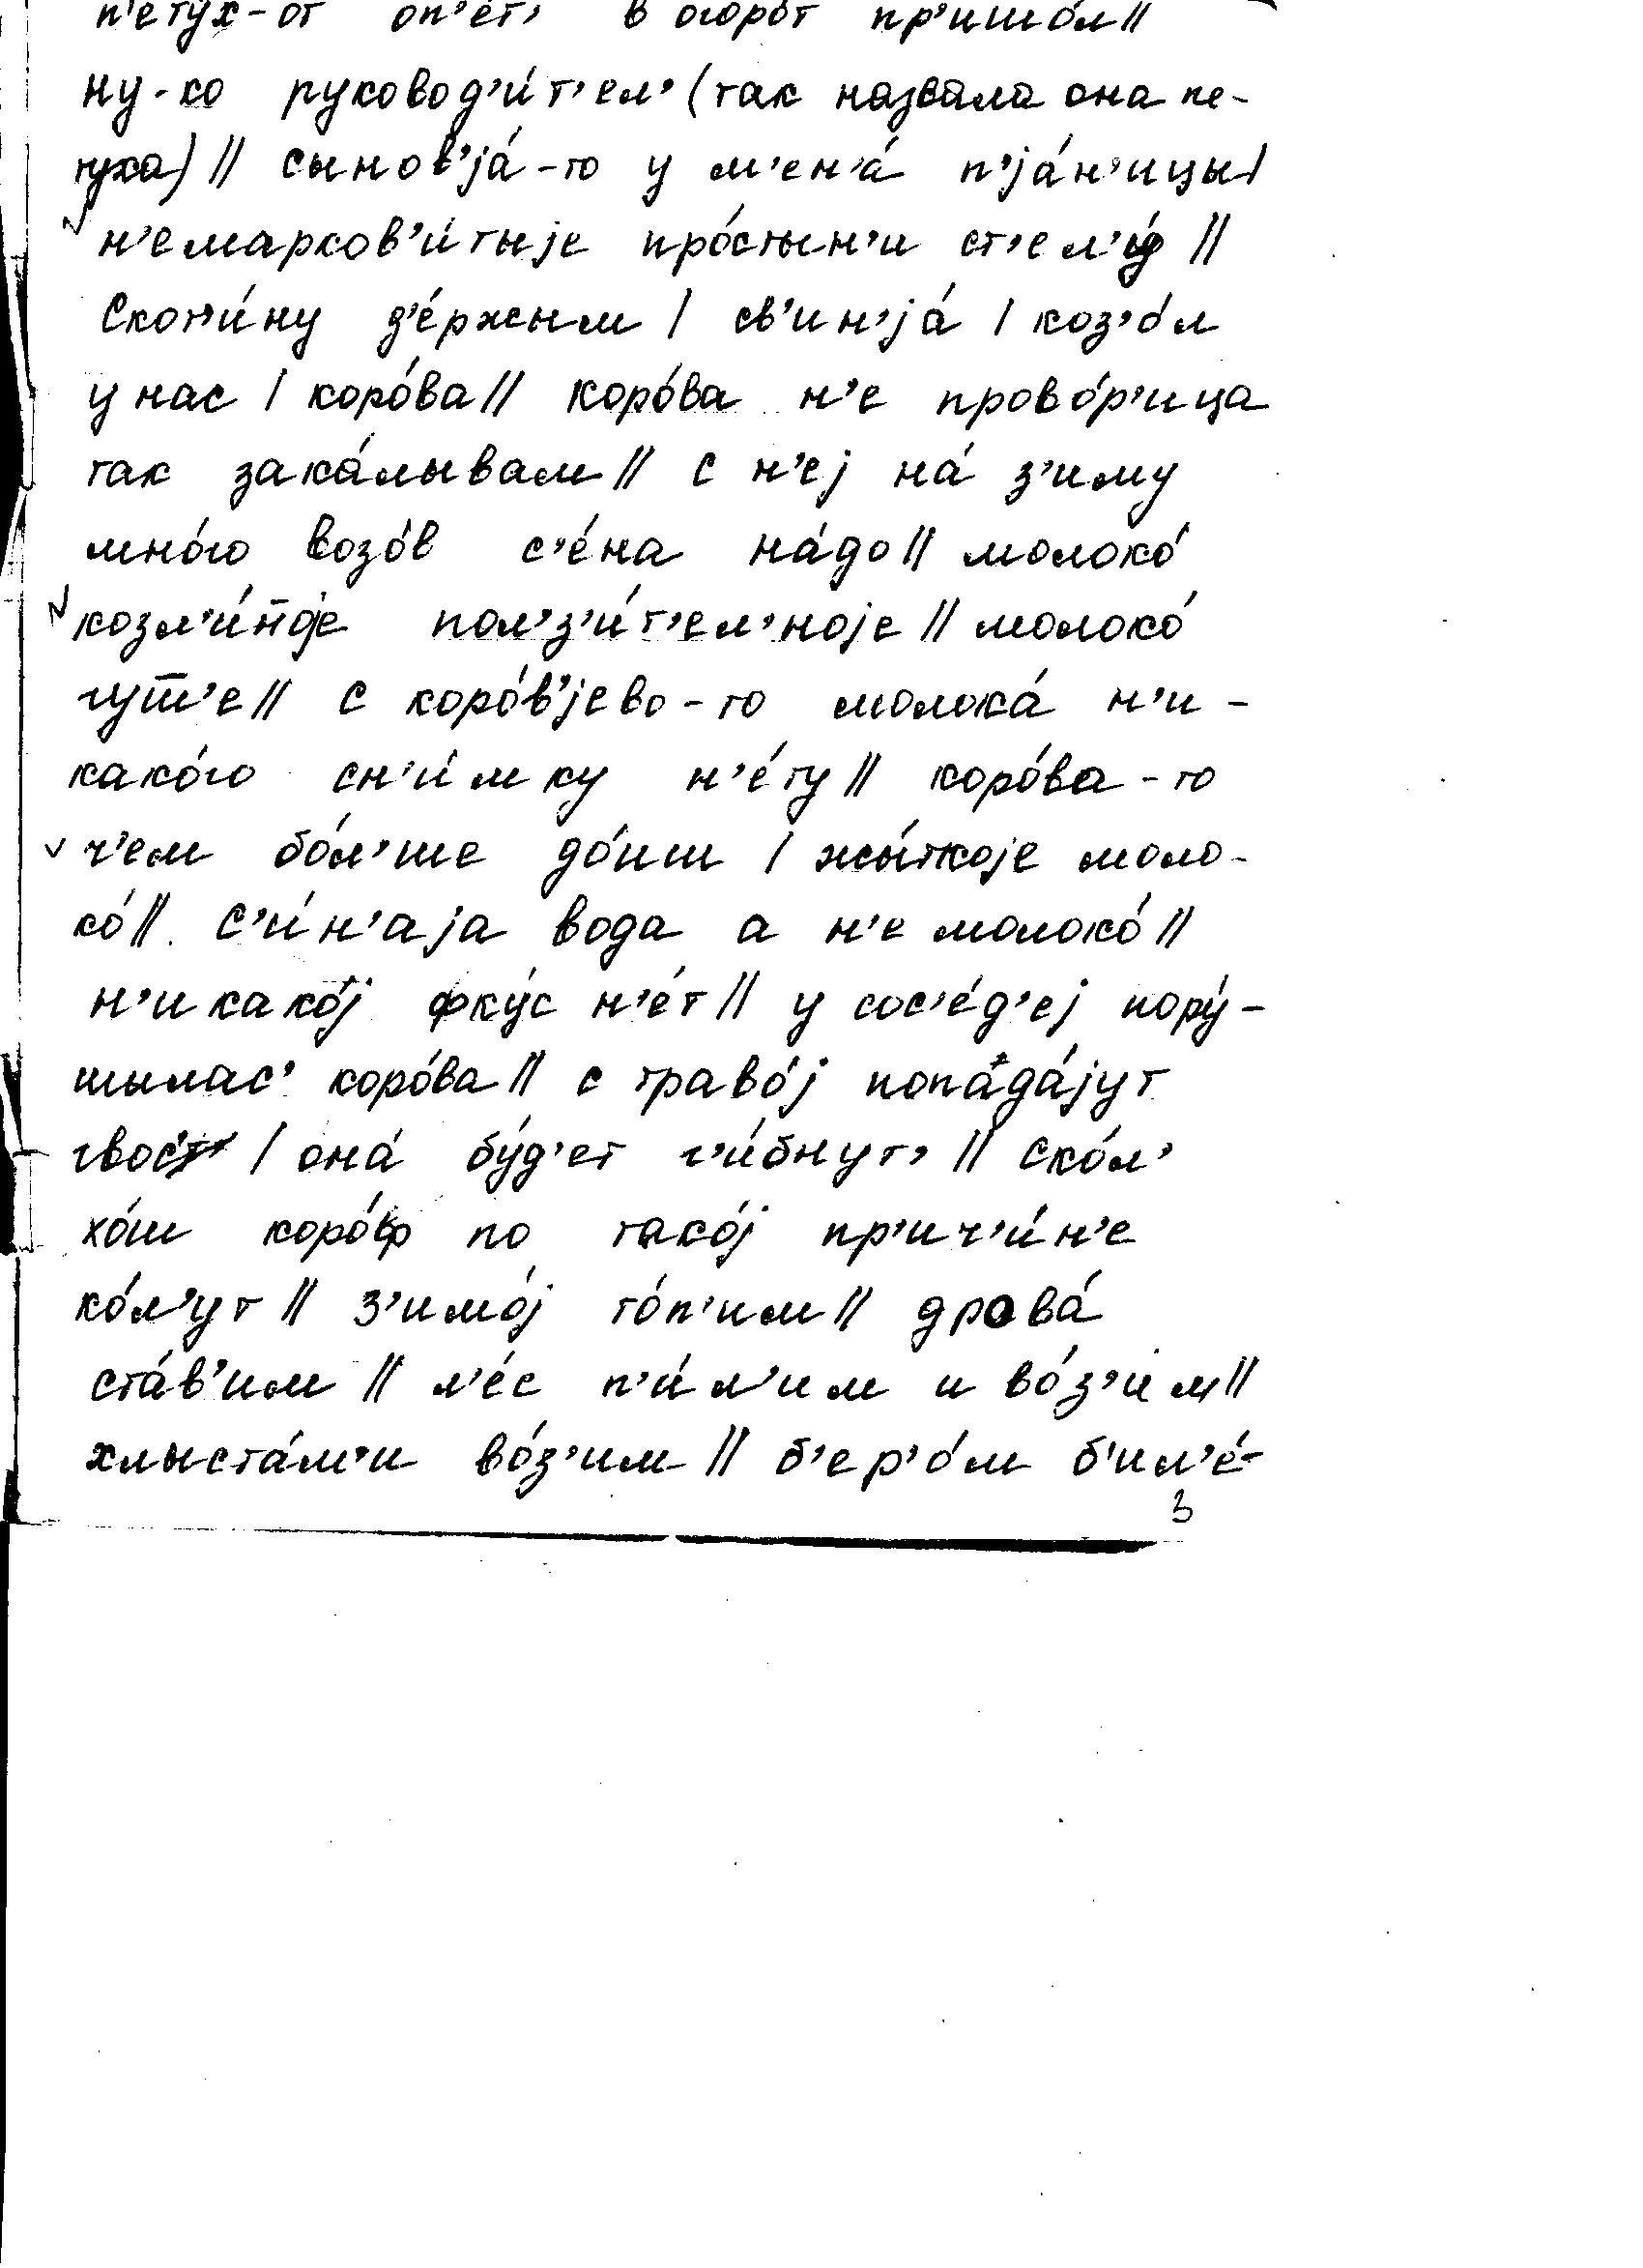 п'ету́х-от оп'е́т' в огоро́т пр'ишо́л ||
ну-ко руковод'и́т'ел' (так назвала она пе-
туха) || сынов'jа́-то у м'ен'а́ п'jа́н'ицы |
н'емарков'и́тыjе про́стын'и ст'ел'у́ ||
Скот'и́ну д'е́ржым | св'ин'jа́ | коз'о́л
у нас | коро́ва || коро́ва н'е прово́р'ица
так зака́лывам || с н'еj на́ з'иму
мно́го возо́в с'е́на на́до || молоко́
козл'и́ноjе пол'з'и́т'ел'ноjе || молоко́
гут'е || с коро́в'jево-то молока́ н'и-
како́го сн'и́мку н'е́ту || коро́ва-то
ч'ем бо́л'ше до́иш | жы́ткоjе моло-
ко́ || с'и́н'аjа вода а н'е молоко́ ||
н'икако́j фку́с н'е́т || у сос'е́д'еj пору́-
шылас' коро́ва || с траво́j попада́jут
гвост' | она́ бу́д'ет г'и́бнут' || ско́л'
хо́ш коро́ф по тако́j пр'ич'и́н'е
ко́л'ут || з'имо́j то́п'им || дрова́
ста́в'им || л'е́с п'и́л'им и во́з'им ||
хлыста́м'и во́з'им || б'ер'о́м б'ил'е́-
3